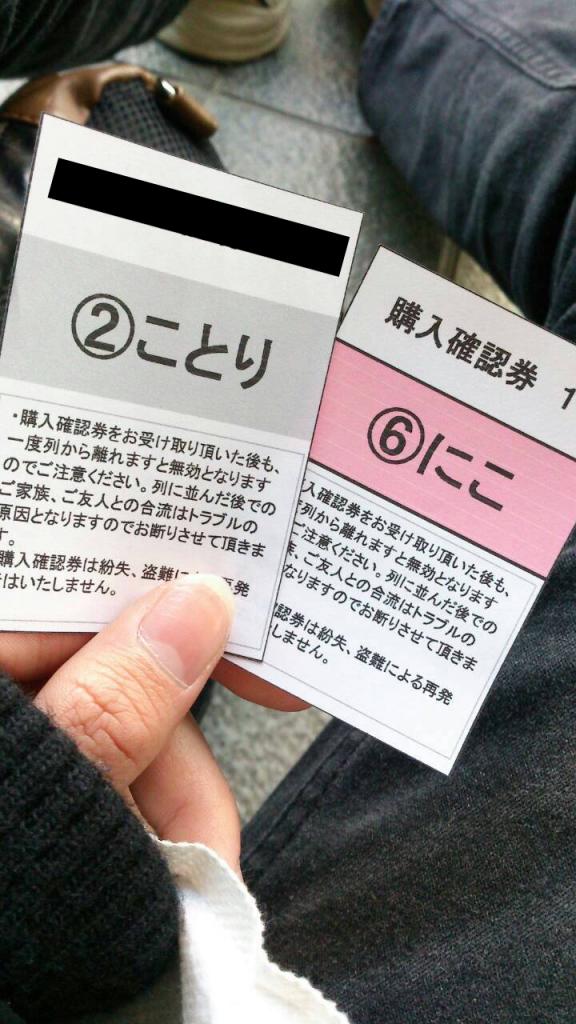 ②ことり
・購入確認券をお受け取り頂いた後も、
一度列から離れますと無効となります
のでご注意ください。列に並んだ後での
ご家族、ご友人との合流はトラブルの
原因となりますのでお断りさせて頂きま
す。
購入確認券は紛失、盗難に 再発
はいたしません。
購入確認券 1
⑥にこ
入確認券をお受け取り頂いた後も、
列から離れますと無効となります
ご注意ください。列に並んだ後での
、ご友人との合流はトラブルの
なりますのでお断りさせて頂きま
認券は紛失、盗難による再発
しません。